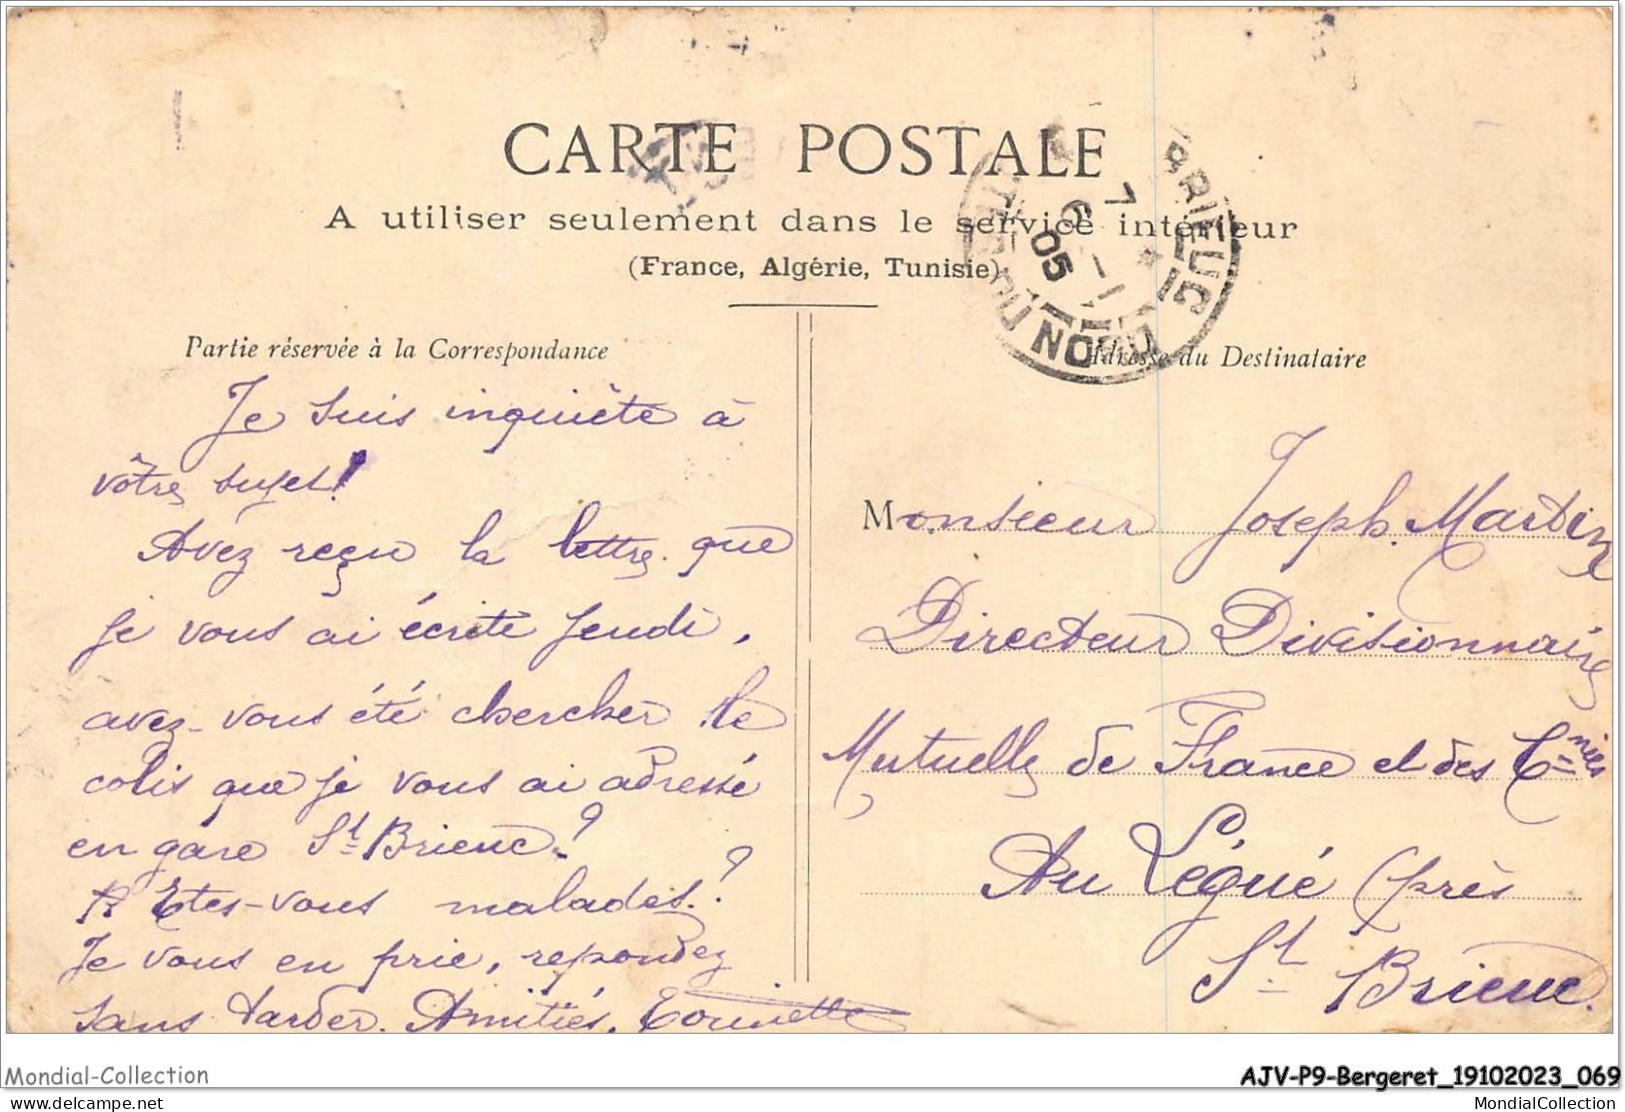 CARTE POSTALE
A utiliser seulement dans le service intérieur
(France, Algérie, Tunisie)
BRIEUC
7
6
05
DU NORD
Partie réservée à la Correspondance
Je suis inquiète à
vôtre sujet!
Avez reçu la lettre que
je vous ai écrite Jeudi,
avez-vous été chercher le
colis que je vous ai adressé
en gare St Brieuc?
Etes-vous malades?
Je vous en prie, repondez
sans tarder. Amitiés.
Adresse du Destinataire
Monsieur Joseph Martin
Directeur Divisionnaire
Mutuelle de France et des Cnies
Au Légué (près
St Brieuc.
Mondial-Collection
AJV-P9-Bergeret_19102023_069
delcampe.net
MondialCollection